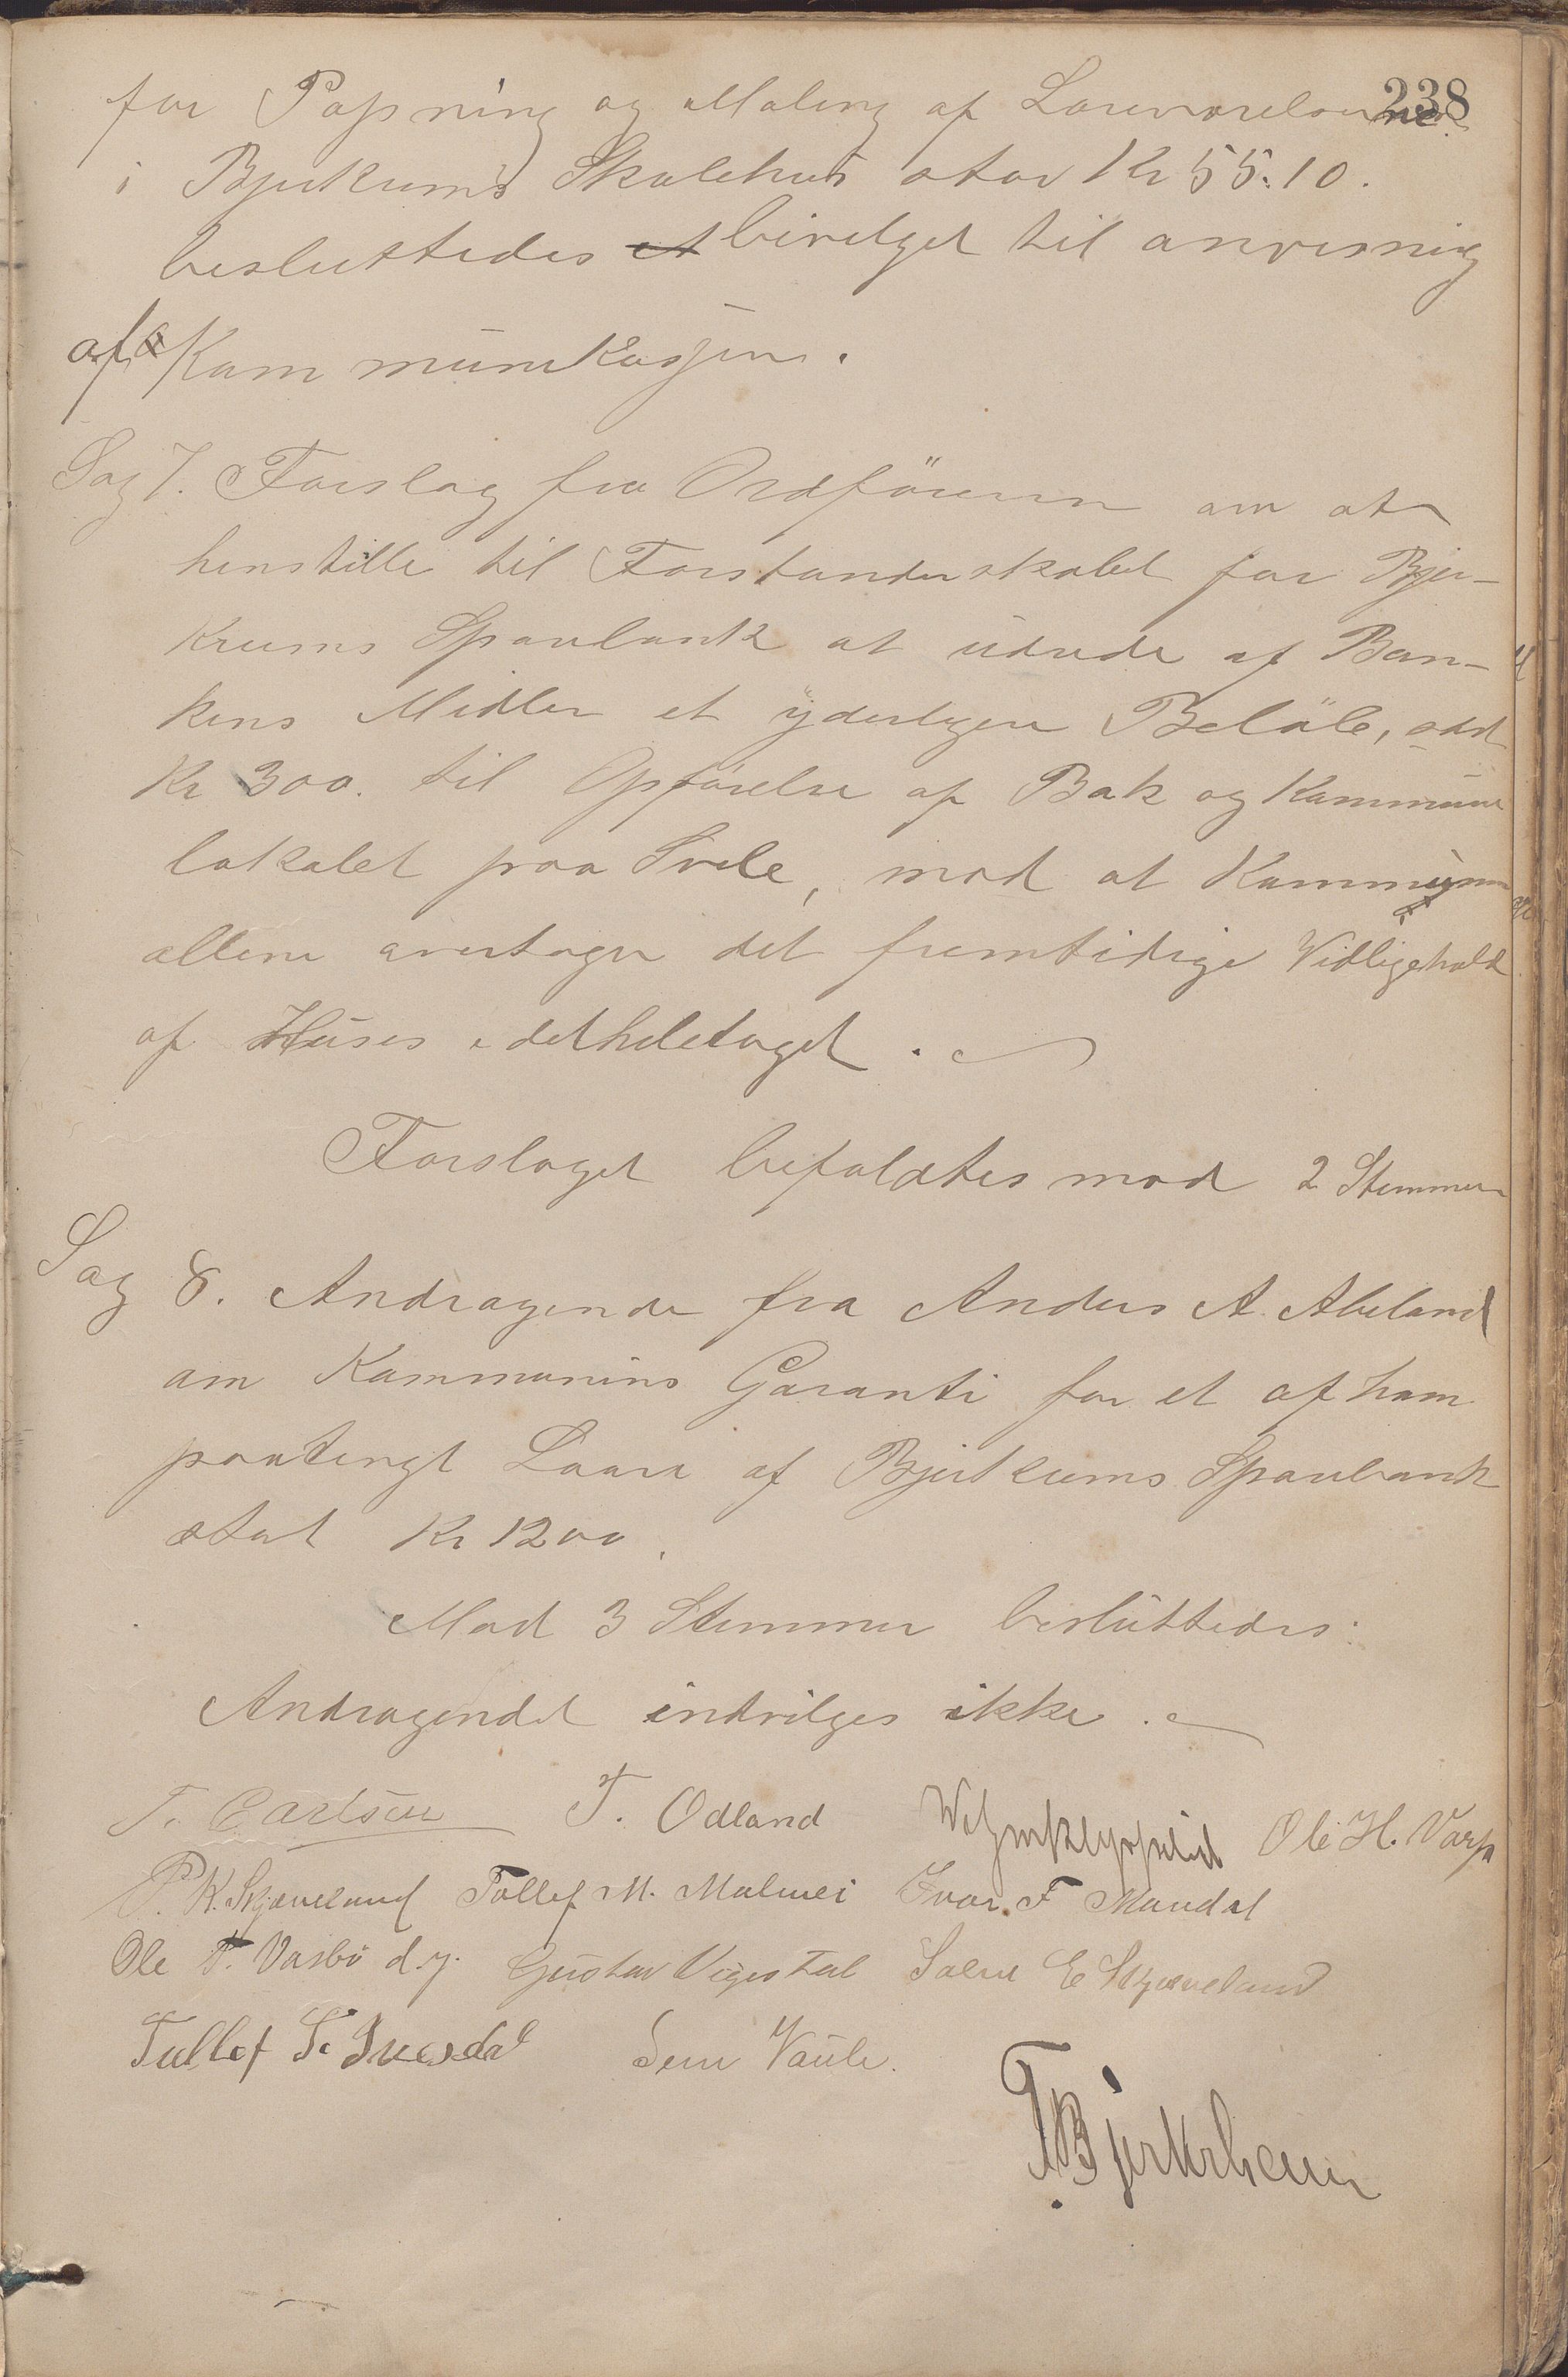 238
for Papning og Maling af Lærerværelserne
i Bjerkrums Skolehus stor Kr 55.10.
besluttedes bevilget til anvisning
af Kommunekassen.
Sag 7. Forslag fra Ordföreren om at
henstille til Forstanderskabet for Bjer-
krums Sparebank at udrede af Ban-
kens Midler et yderligere Belöb, stort
Kr 300. til Opförelse af Bak og Kommune
lokalet paa Svele, mod at Kommunen
allene overtager det fremtidige Vedligehold
af Huset i detheletaget.
Forslaget befaldtes mod 2 Stemmer
Sag 8. Andragende fra Anders A. Abeland
om Kommunens Garanti for et af ham
paatengt Laan af Bjerkrums Sparebank
stort Kr 1200.
Mod 3 Stemmer besluttedes:
Andragendet indvilges ikke.
T. Carlsen T. Odland Ole H. Varp
P. K. Skjæveland Tollef M. Malmei Ivar F Maudal
Ole T. Vasbö d.y. Gustav Vigestal Salve E Skjæveland
Tollef S. Ivesdal Sem Vaule.
T Bjerkrheim